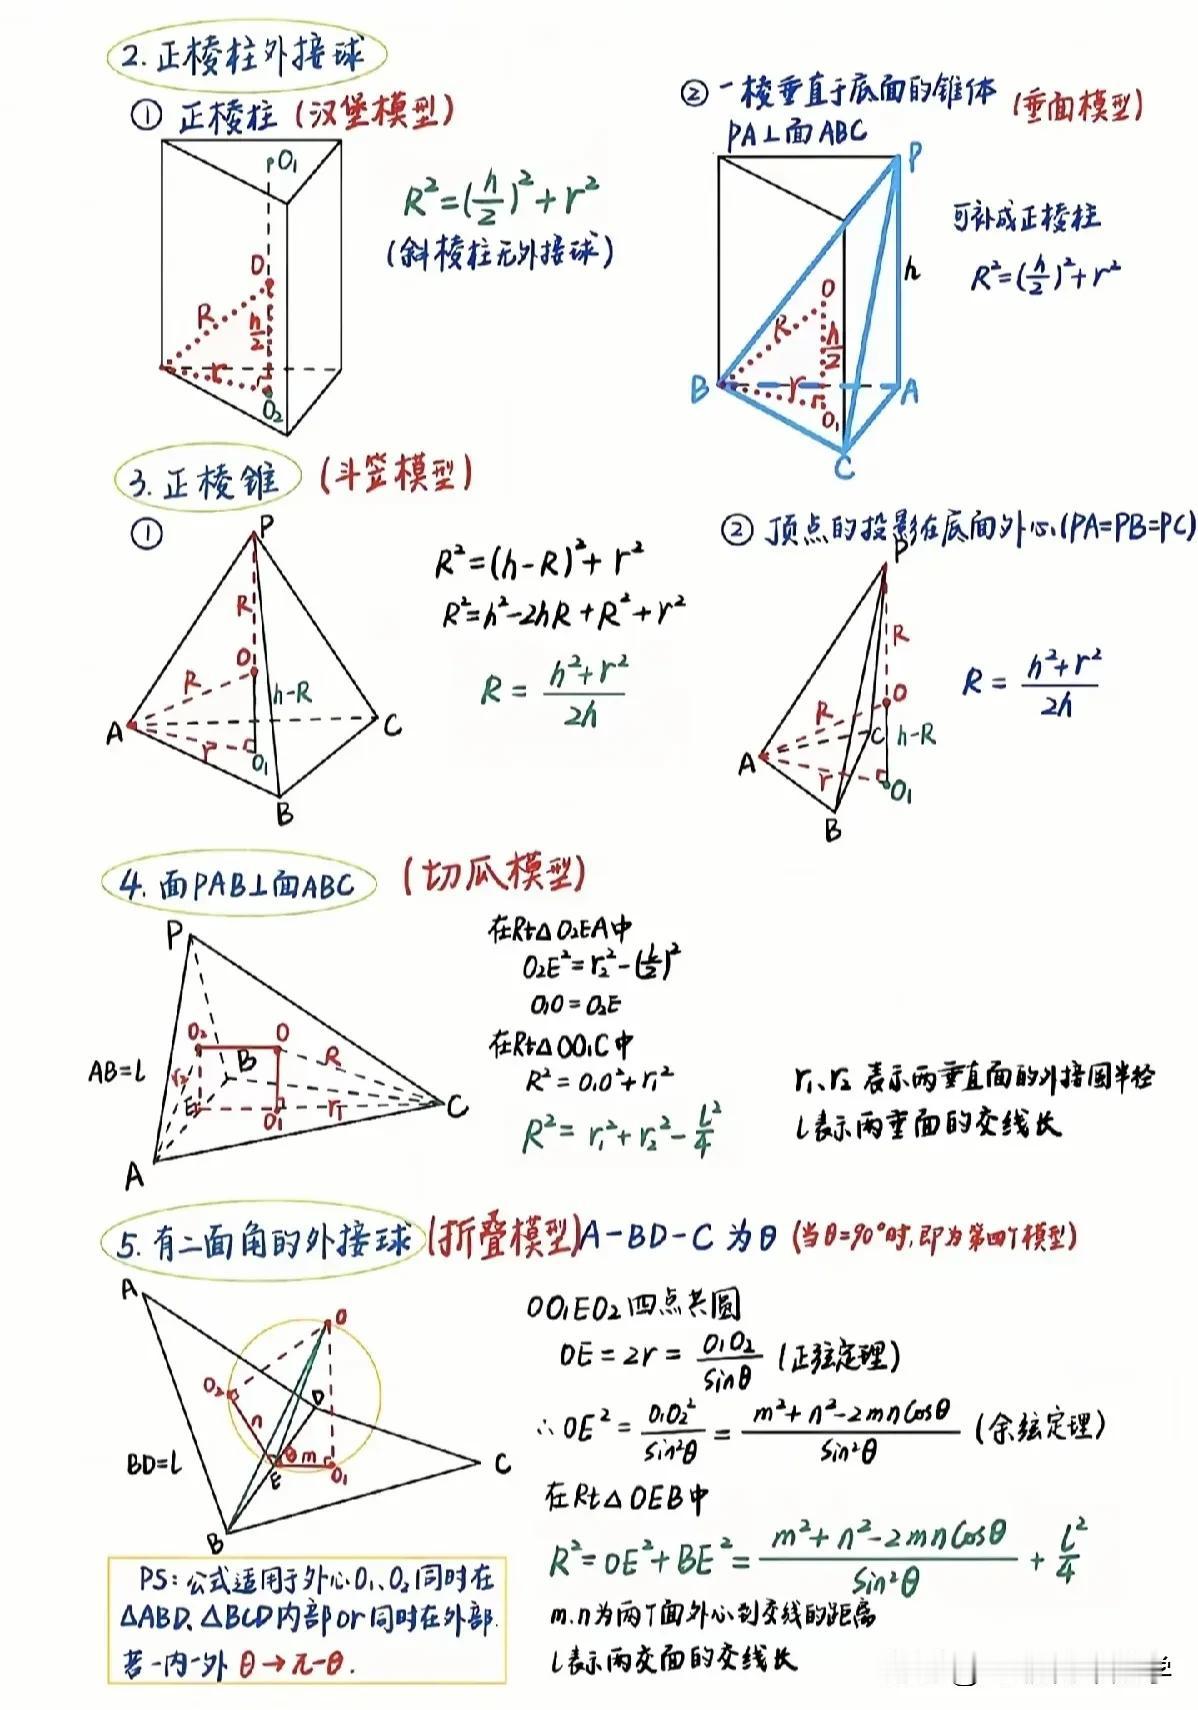 2. 正棱柱外接球
① 正棱柱 (汉堡模型)
O₁
R²=(h/2)²+r²
(斜棱柱无外接球)
O
R
h/2
r
O₂
② 一棱垂直于底面的锥体
(垂面模型)
PA⊥面ABC
P
可补成正棱柱
h
R²=(h/2)²+r²
O
R
h/2
B
r
A
O₁
C
3. 正棱锥
(斗笠模型)
①
P
R²=(h-R)²+r²
R²=h²-2hR+R²+r²
R=(h²+r²)/2h
R
O
R
h-R
A
r
O₁
C
B
② 顶点的投影在底面外心(PA=PB=PC)
P
R
O
R=(h²+r²)/2h
R
C
h-R
A
r
O₁
B
4. 面PAB⊥面ABC
(切瓜模型)
P
O₂
O
B
R
AB=l
r₂
E
O₁
r₁
C
A
在Rt△O₂EA中
O₂E²=r₂²-(l/2)²
O₁O=O₂E
在Rt△OO₁C中
R²=O₁O²+r₁²
R²=r₁²+r₂²-l²/4
r₁、r₂ 表示两垂直面的外接圆半径
l表示两垂面的交线长
5. 有二面角的外接球
(折叠模型)
A-BD-C 为θ
(当θ=90°时,即为第四个模型)
A
O
O₂
D
n
θ
m
E
O₁
C
BD=l
B
OO₁EO₂四点共圆
OE=2r=O₁O₂/sinθ (正弦定理)
∴OE²=O₁O₂²/sin²θ=(m²+n²-2mncosθ)/sin²θ (余弦定理)
在Rt△OEB中
R²=OE²+BE²=(m²+n²-2mncosθ)/sin²θ+l²/4
m.n为两个面外心到交线的距离
l表示两交面的交线长
PS:公式适用于外心O₁、O₂同时在
△ABD、△BCD内部or同时在外部.
若一内一外 θ→π-θ.